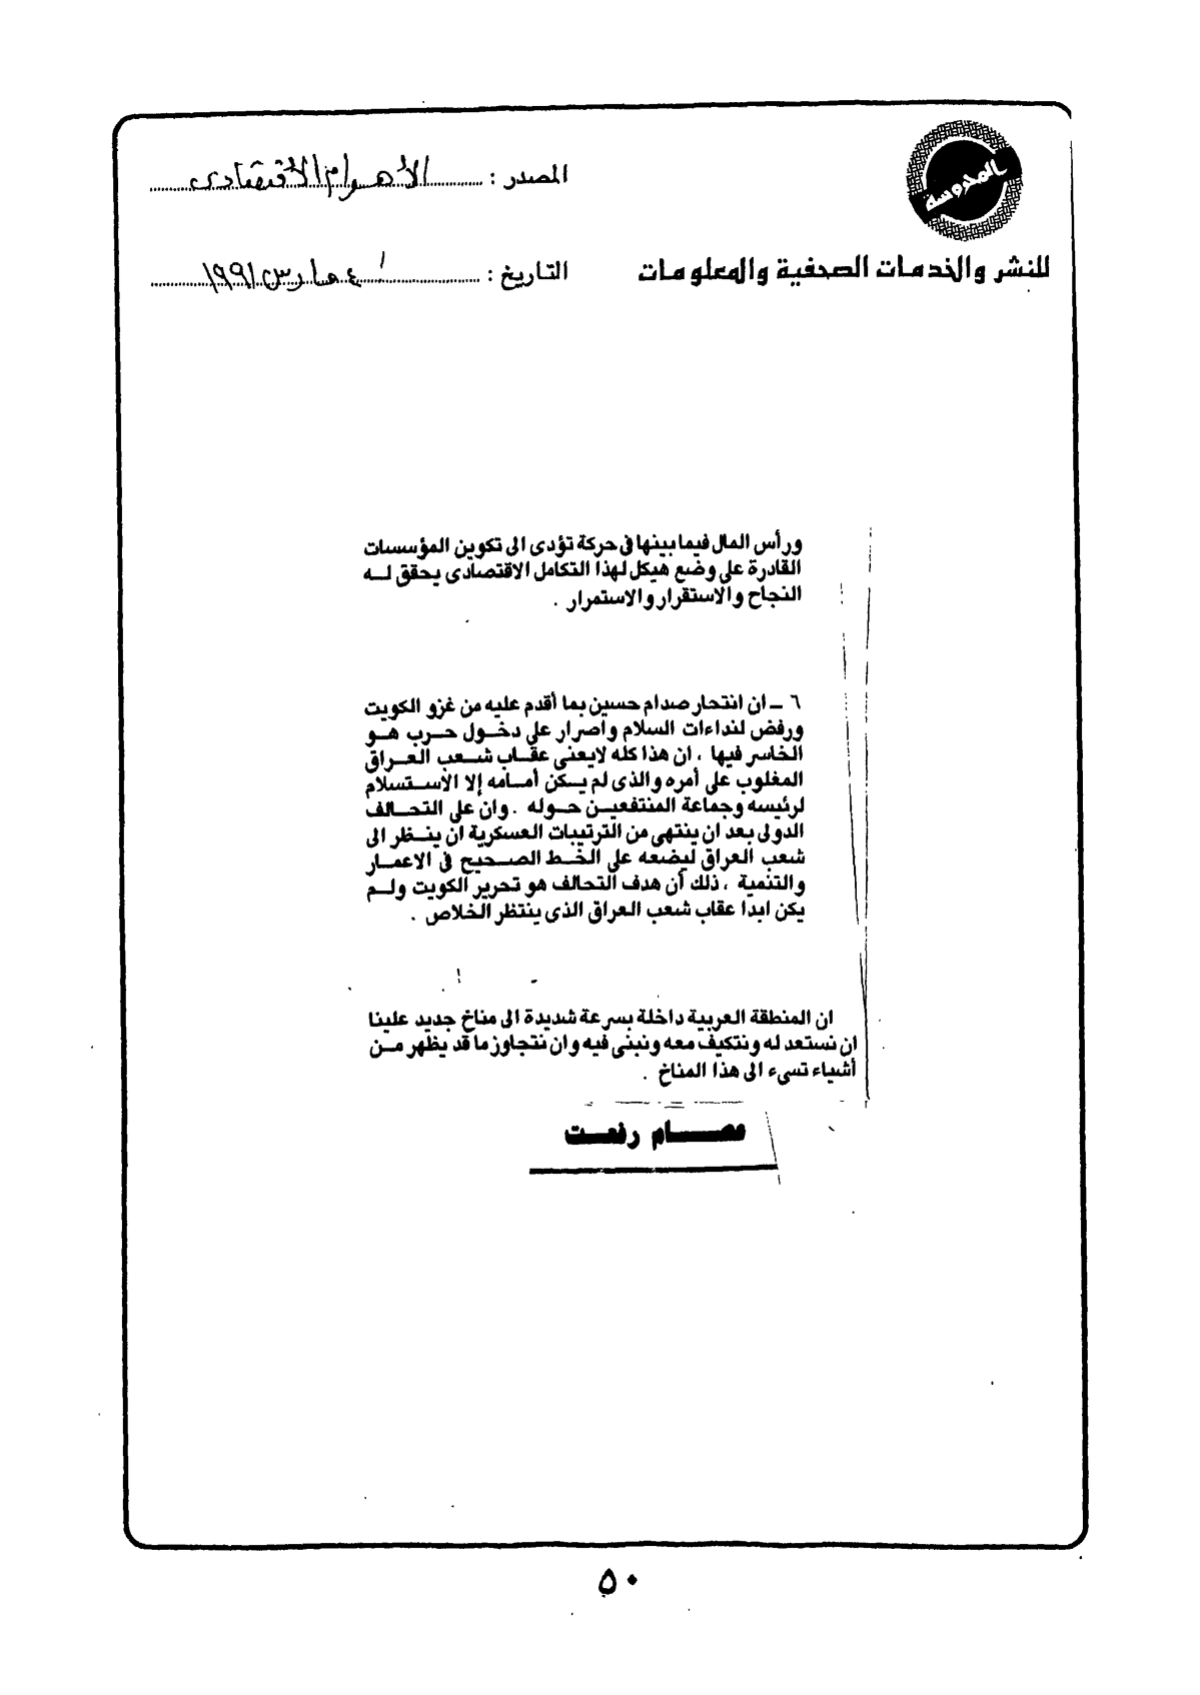 المحروسة
للنشر والخدمات الصحفية والمعلومات
المصدر : الأهرام الاقتصادى
التاريخ : ٤ مارس ١٩٩١
ورأس المال فيما بينها فى حركة تؤدى الى تكوين المؤسسات
القادرة على وضع هيكل لهذا التكامل الاقتصادى يحقق لــه
النجاح والاستقرار والاستمرار .
٦ ــ ان انتحار صدام حسين بما أقدم عليه من غزو الكويت
ورفض لنداءات السلام واصرار على دخــول حــرب هــو
الخاسر فيها ، ان هذا كله لايعنى عقــاب شــعب العــراق
المغلوب على أمره والذى لم يــكن أمــامه إلا الاســتسلام
لرئيسه وجماعة المنتفعيــن حــوله . وان على التحــالف
الدولى بعد ان ينتهى من الترتيبات العسكرية ان ينــظر الى
شعب العراق ليضعه على الخــط الصــحيح فى الاعمــار
والتنمية ، ذلك أن هدف التحالف هو تحرير الكويت ولــم
يكن ابدا عقاب شعب العراق الذى ينتظر الخلاص .
ان المنطقة العربية داخلة بسرعة شديدة الى مناخ جديد علينا
ان نستعد له ونتكيف معه ونبنى فيه وان نتجاوز ما قد يظهر مــن
أشياء تسىء الى هذا المناخ .
عصــــام رفعــت
٥٠